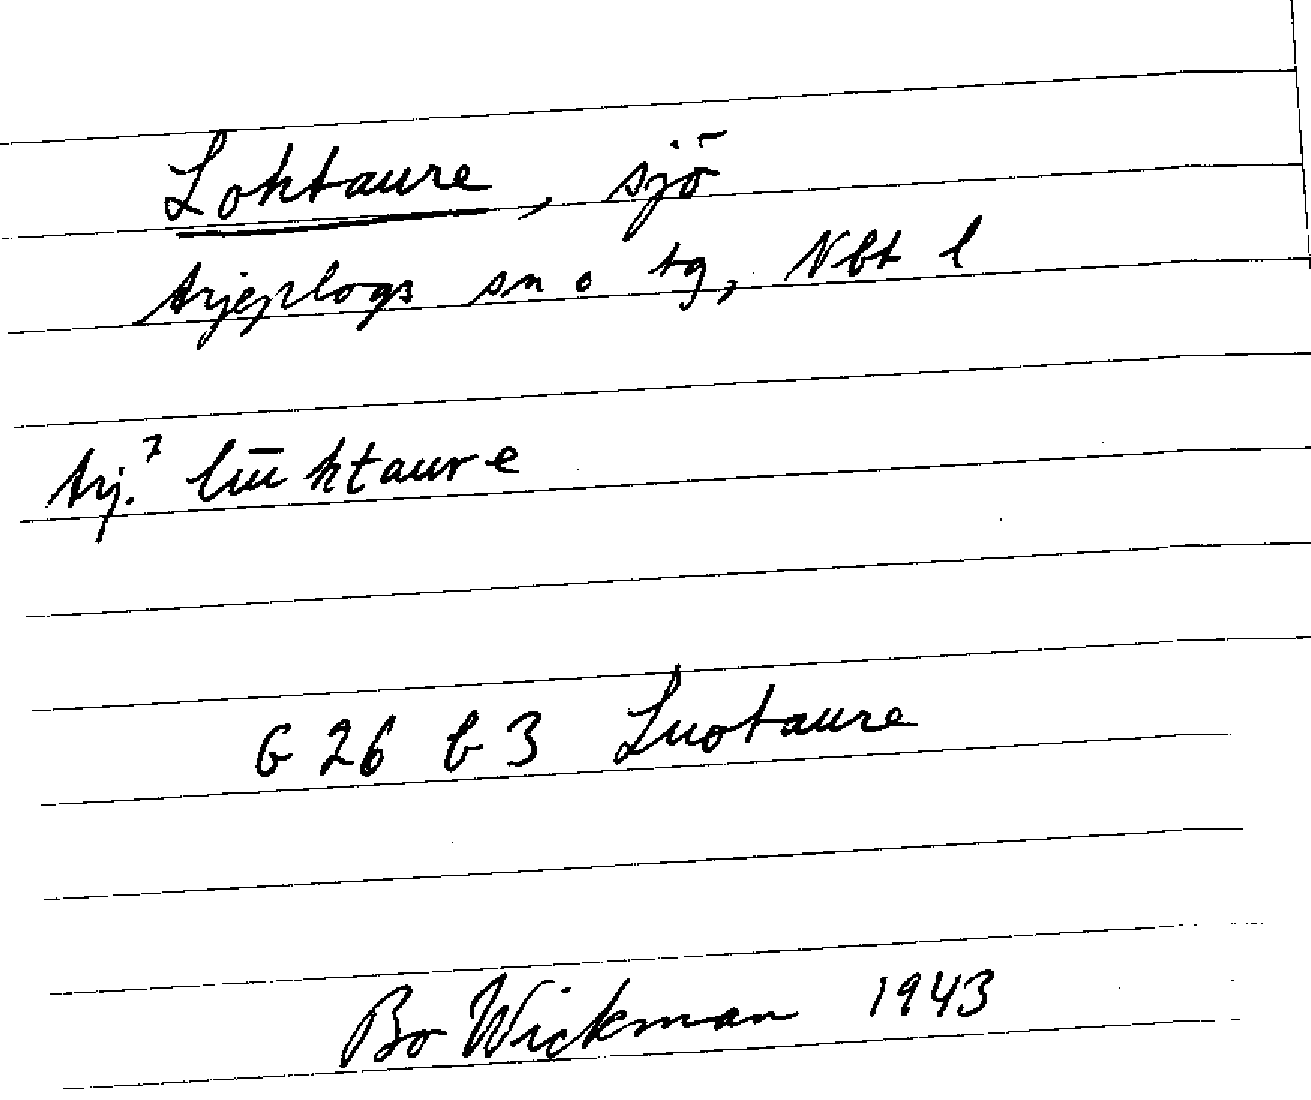 Lohtaure, sjö
Arjeplogs sn o tg, Nbt l
Arj.⁷ lūhtaure
G 26 b 3 Luotaure
Bo Wickman 1943